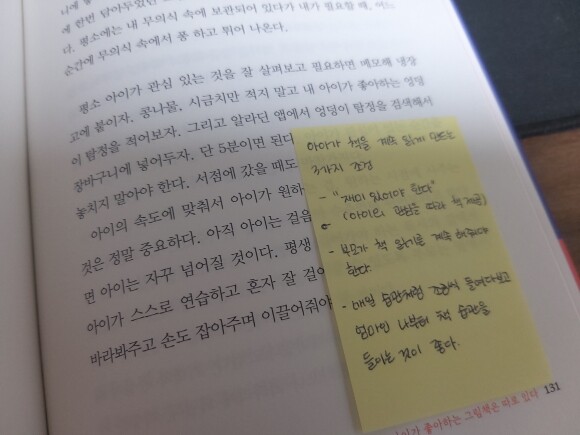 니에 넣
에 한번 담아두었던
다. 평소에는 내 무의식 속에 보관되어 있다가 내가 필요할 때, 어느
순간에 무의식 속에서 퐁 하고 튀어 나온다.
평소 아이가 관심 있는 것을 잘 살펴보고 필요하면 메모해 냉장
고에 붙이자. 콩나물, 시금치만 적지 말고 내 아이가 좋아하는 엉덩
이 탐정을 적어보자. 그리고 알라딘 앱에서 엉덩이 탐정을 검색해서
장바구니에 넣어두자. 단 5분이면 된다
놓치지 말아야 한다. 서점에 갔을 때도
아이의 속도에 맞춰서 아이가 원하
것은 정말 중요하다. 아직 아이는 걸음
면 아이는 자꾸 넘어질 것이다. 평생
아이가 스스로 연습하고 혼자 잘 걸어
바라봐주고 손도 잡아주며 이끌어줘야
아이가 책을 계속 읽게 만드는
3가지 조건
- "재미 있어야 한다"
(아이의 관심을 따라 책 제공)
- 부모가 책 읽기를 계속 해줘야
한다.
- 매일 습관처럼 조금씩 들여다보고
엄마인 나부터 책 습관을
들이는 것이 좋다.
이가 좋아하는 그림책은 따로 있다 131